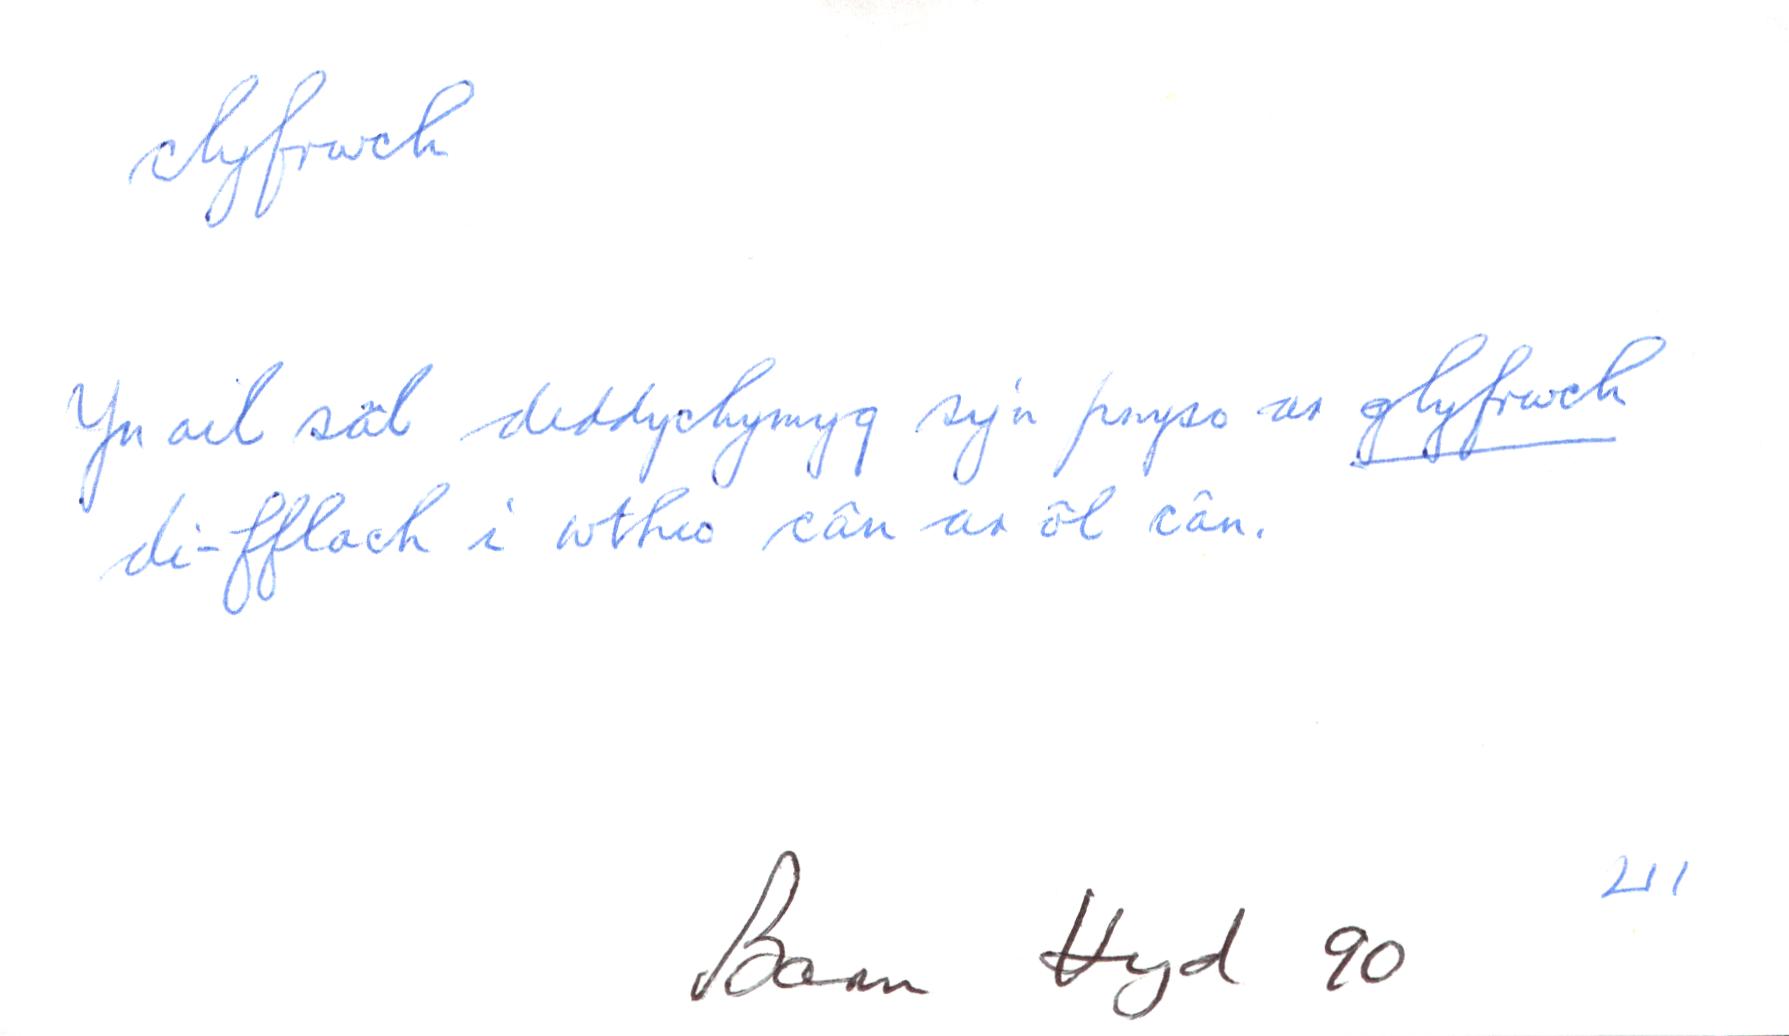 clyfrwch
Yn ail sâl deddychymyg sy'n pwyso ar glyfrwch
di-fflach i wthio cân ar ôl cân.
Barn Hyd 90